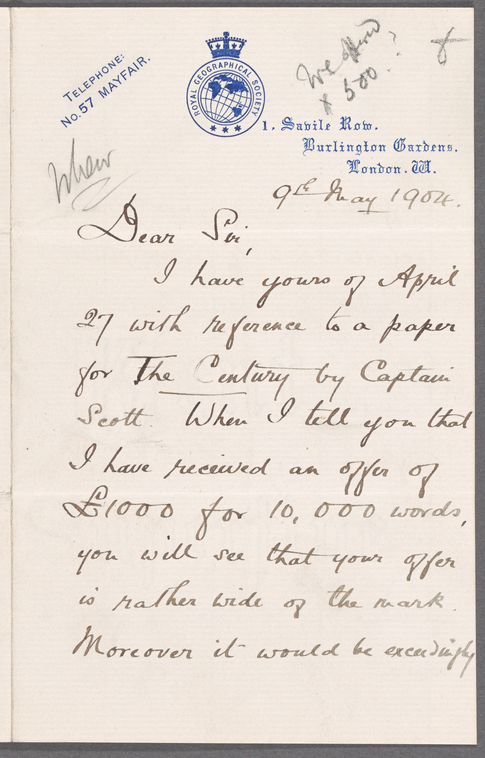 TELEPHONE:
No. 57 MAYFAIR.
ROYAL GEOGRAPHICAL SOCIETY
We
$ 500?
1, Savile Row.
Burlington Gardens.
London. W.
Whew
9th May 1904.
Dear Sir,
I have yours of April
27 with reference to a paper
for The Century by Captain
Scott. When I tell you that
I have received an offer of
£1000 for 10,000 words,
you will see that your offer
is rather wide of the mark.
Moreover it would be exceedingly